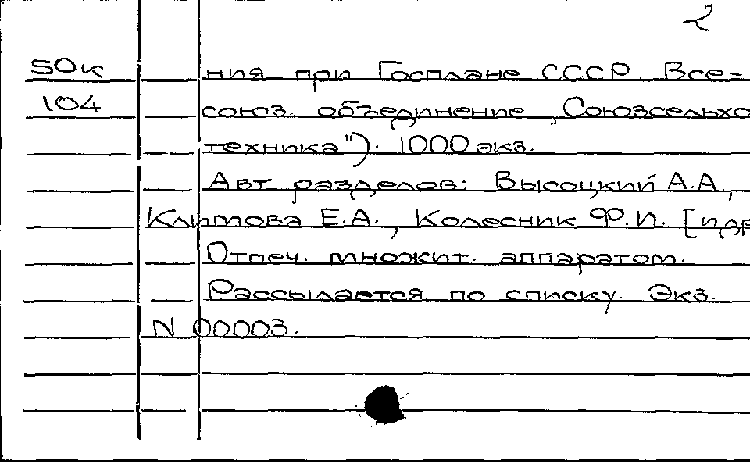 2
50к ния при Госплане СССР. Все-
104 союз. объединение „Союзсельхо
техника"). 1000 экз.
Авт. разделов: Высоцкий А.А.,
Климова Е.А., Колесник Ф.И. [и др
Отпеч. множит. аппаратом.
Рассылается по списку. Экз.
N 00003.